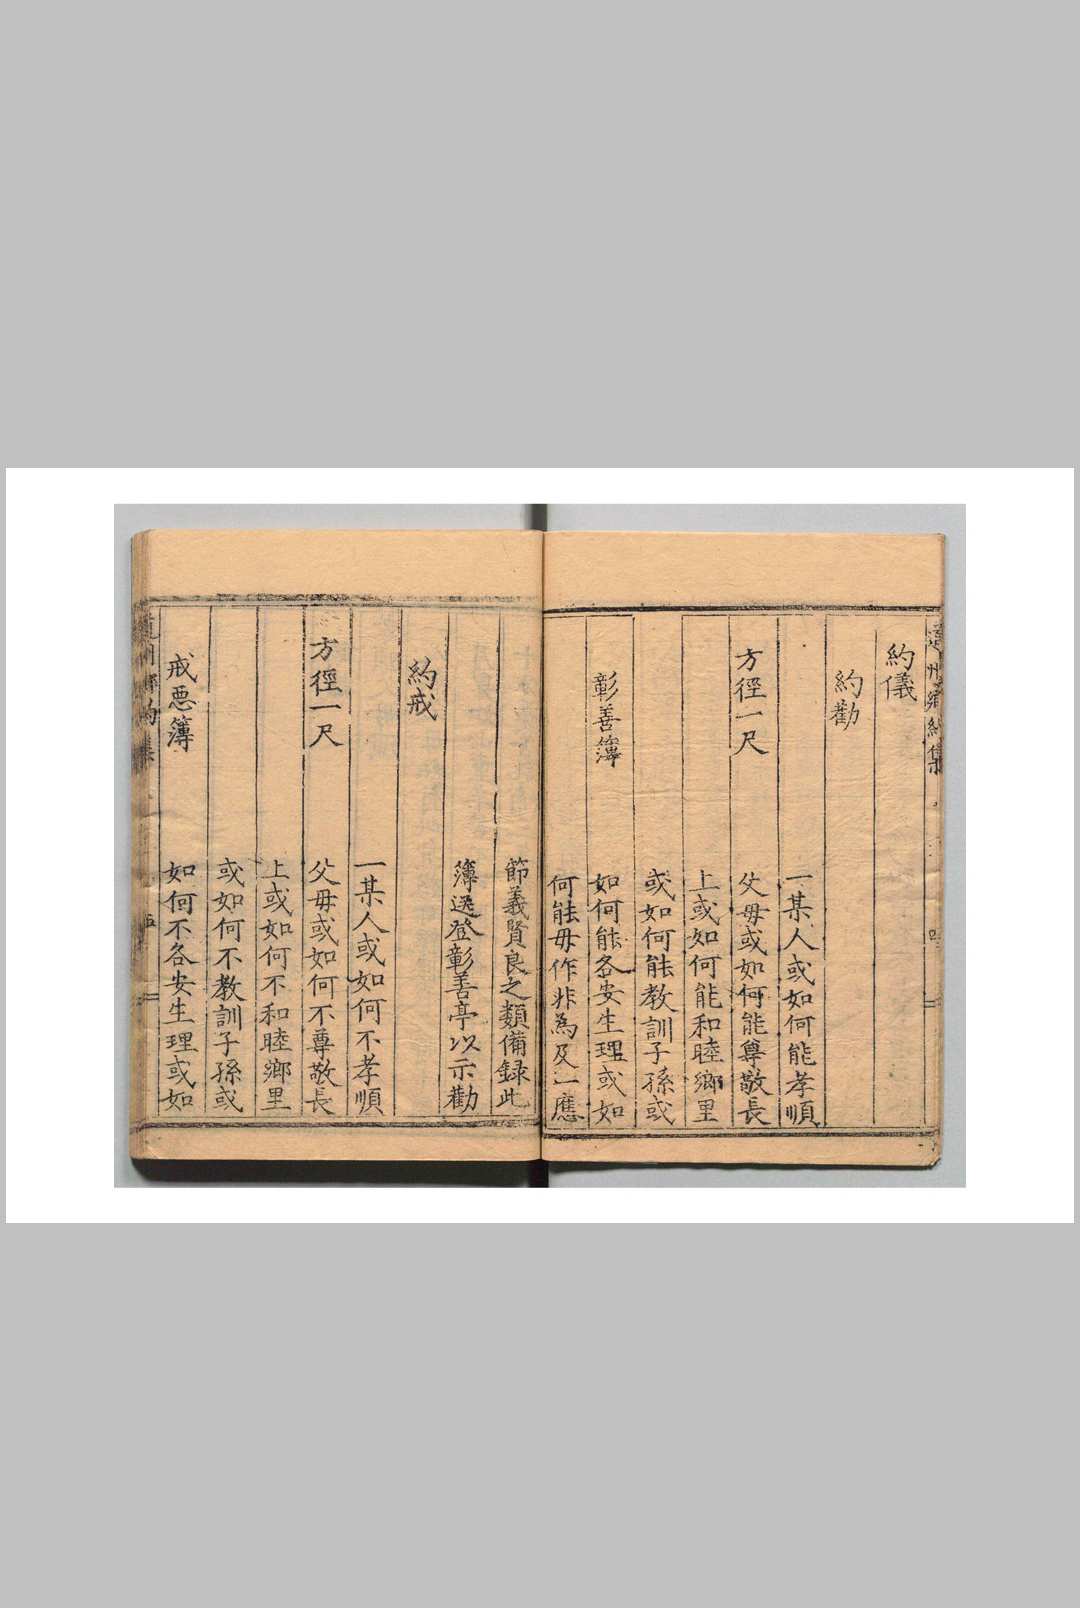 約儀
約勸
一某人或如何能孝順
方徑一尺
父毋或如何能尊敬長
上或如何能和睦鄉里
或如何能教訓子孫或
彰善簿
如何能各安生理或如
何能毋作非為及一應
節義賢良之類備録此
簿送登彰善亭以示勸
約戒
一某人或如何不孝順
方徑一尺
父毋或如何不尊敬長
上或如何不和睦鄉里
或如何不教訓子孫或
戒惡簿
如何不各安生理或如
州鄉約集
五